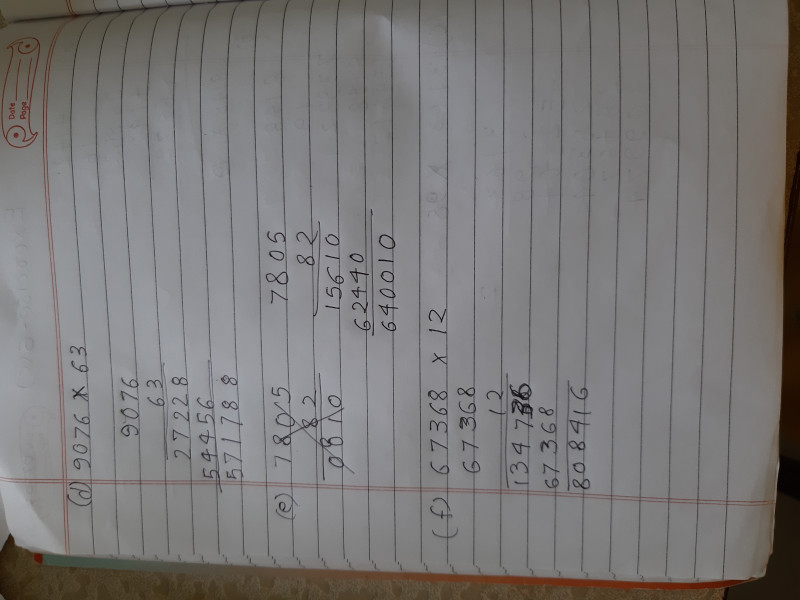 Date
Page
(d) 9076 x 63
9076
63
27228
54456
571788
(e) 7805 7805
82 82
15610
62440
640010
(f) 67368 x 12
67368
12
134736
67368
808416